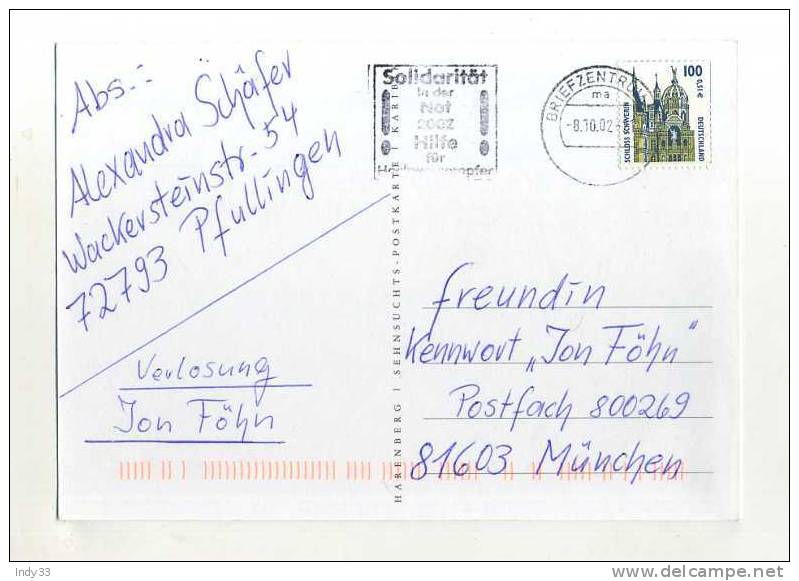 Abs.:
Alexandra Schäfer
Wackersteinstr. 54
72793 Pfullingen
Verlosung
Ion Föhn
HARENBERG | SEHNSUCHTS-POSTKARTE | KARIB
Solidarität
in der
Not
2002
Hilfe
für
BRIEFZENTRUM
ma
-8.10.02
100
0,51€
SCHLOSS SCHWERIN
DEUTSCHLAND
freundin
Kennwort „Ion Föhn"
Postfach 800269
81603 München
Indy33
delcampe.net